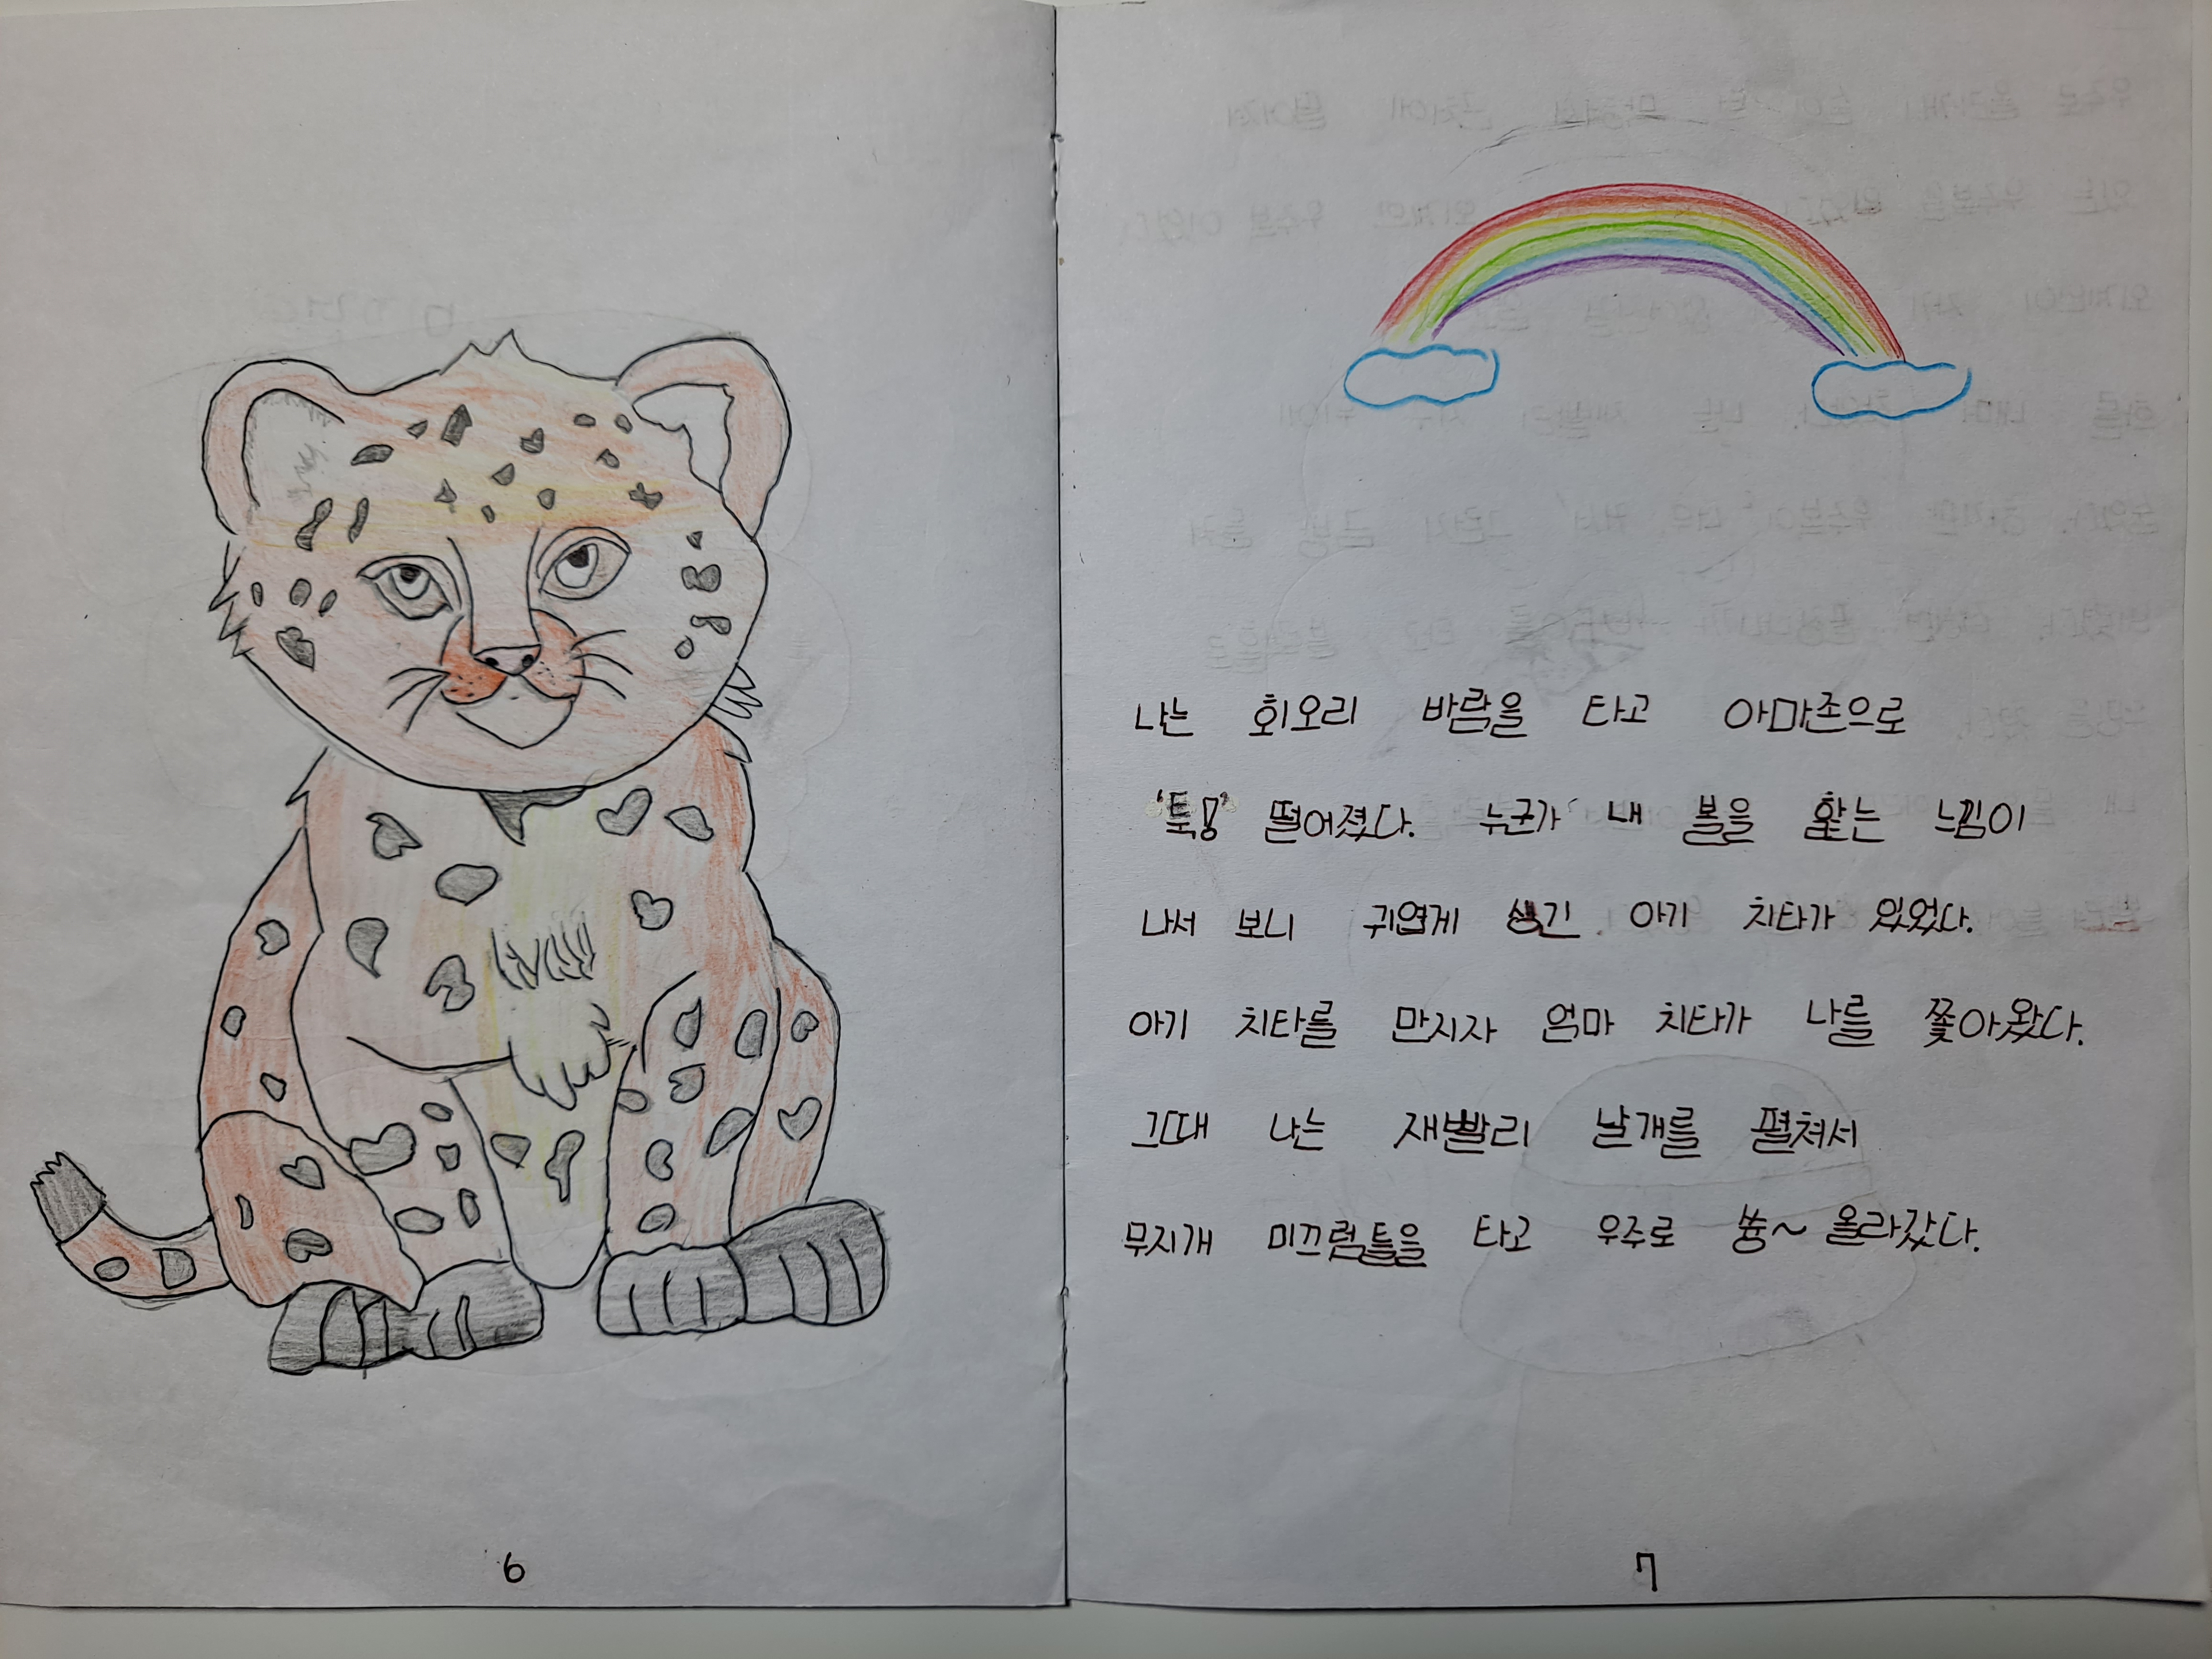 나는 회오리 바람을 타고 아마존으로
'툭!' 떨어졌다. 누군가 내 볼을 핥는 느낌이
나서 보니 귀엽게 생긴 아기 치타가 있었다.
아기 치타를 만지자 엄마 치타가 나를 쫓아왔다.
그때 나는 재빨리 날개를 펼쳐서
무지개 미끄럼틀을 타고 우주로 쓩~ 올라갔다.
6
7